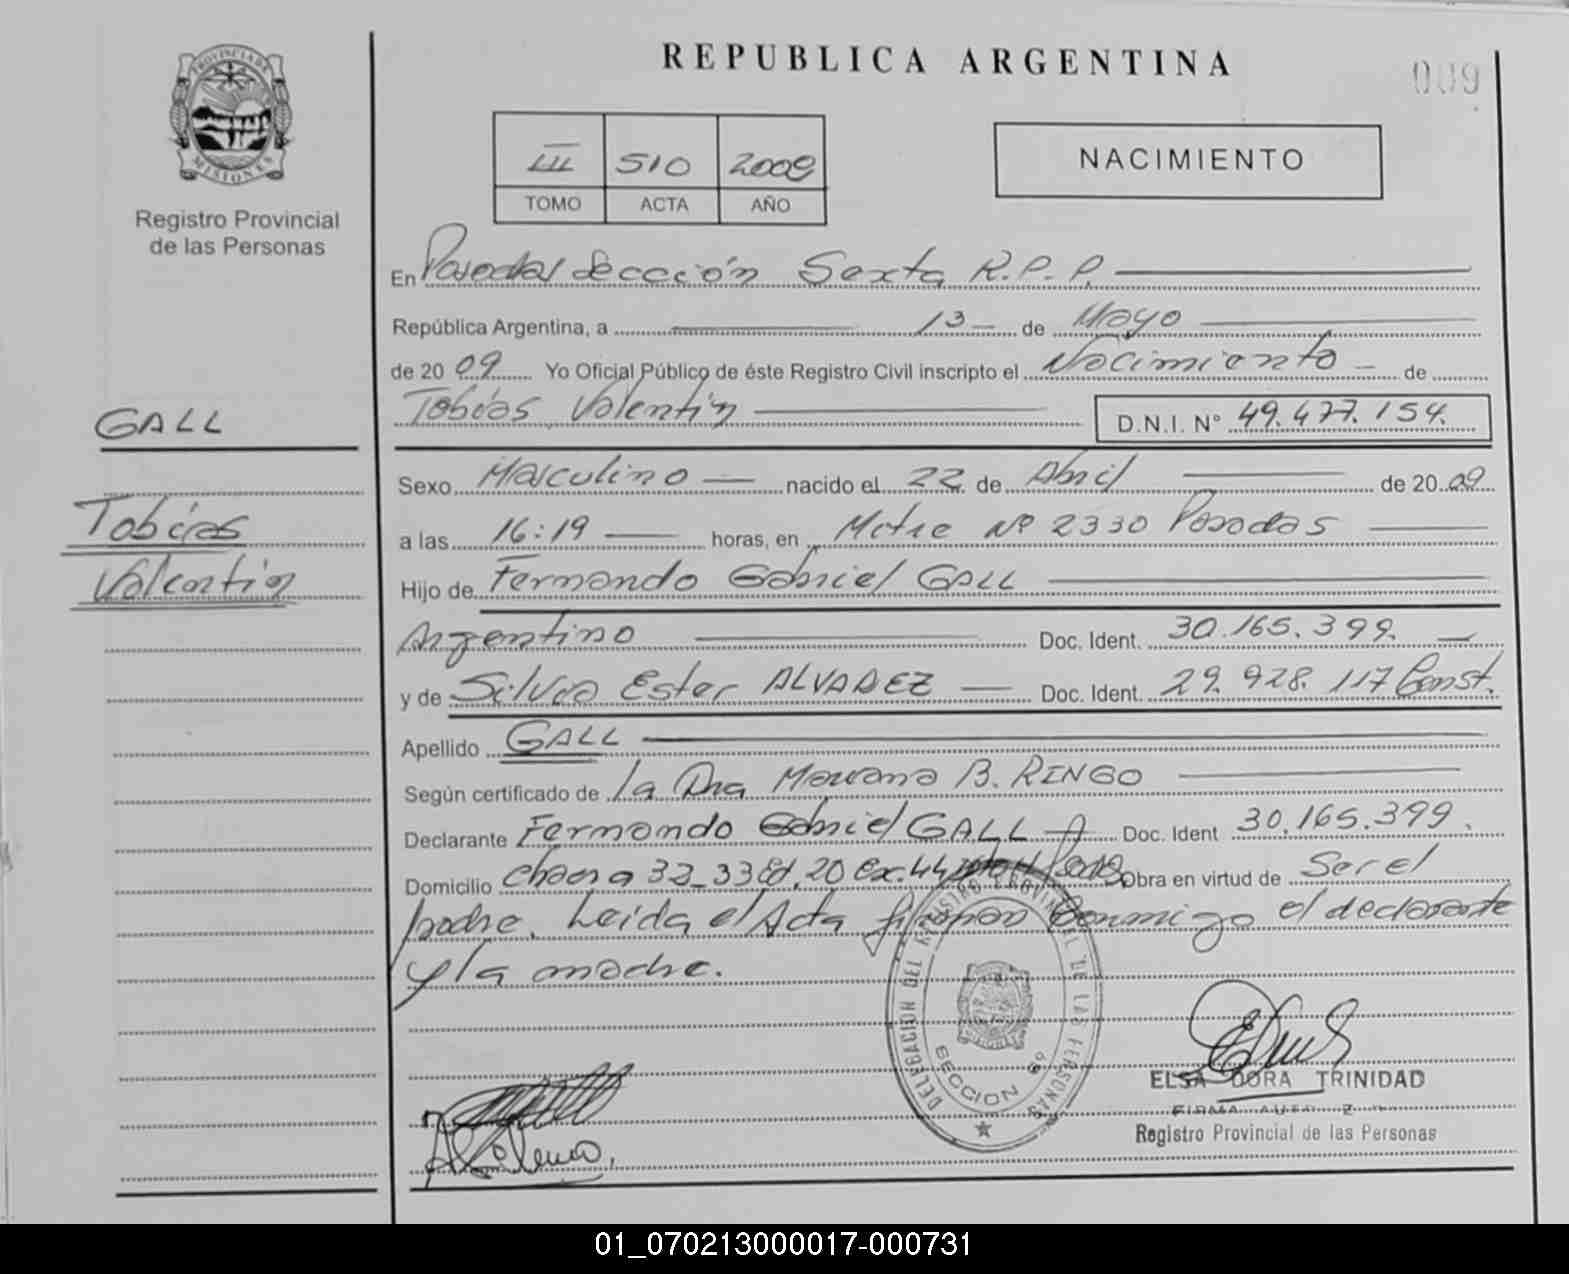 REPUBLICA ARGENTINA
009
PROVINCIA DE MISIONES
Registro Provincial
de las Personas
III 510 2009
TOMO ACTA AÑO
NACIMIENTO
En Posadas Sección Sexta R.P.P.
República Argentina, a 13 de Mayo
de 2009 Yo Oficial Público de éste Registro Civil inscripto el Nacimiento de
Tobías Valentín D.N.I. N° 49.477.154.
GALL
Tobías
Valentín
Sexo Masculino nacido el 22 de Abril de 2009
a las 16:19 horas, en Mitre Nº 2330 Posadas
Hijo de Fernando Gabriel GALL
Argentino Doc. Ident. 30.165.399.
y de Silvia Ester ALVAREZ Doc. Ident. 29.928.117 Const.
Apellido GALL
Según certificado de la Dra Mariana B. RINGO
Declarante Fernando Gabriel GALL Doc. Ident 30.165.399.
Domicilio chacra 32_33 Ed. 20 Obra en virtud de Ser el
padre. Leida el Acta firman conmigo el declarante
y la madre.
DELEGACION DEL REGISTRO PROVINCIAL DE LAS PERSONAS
SECCION 6º
ELSA DORA TRINIDAD
Registro Provincial de las Personas
01_070213000017-000731